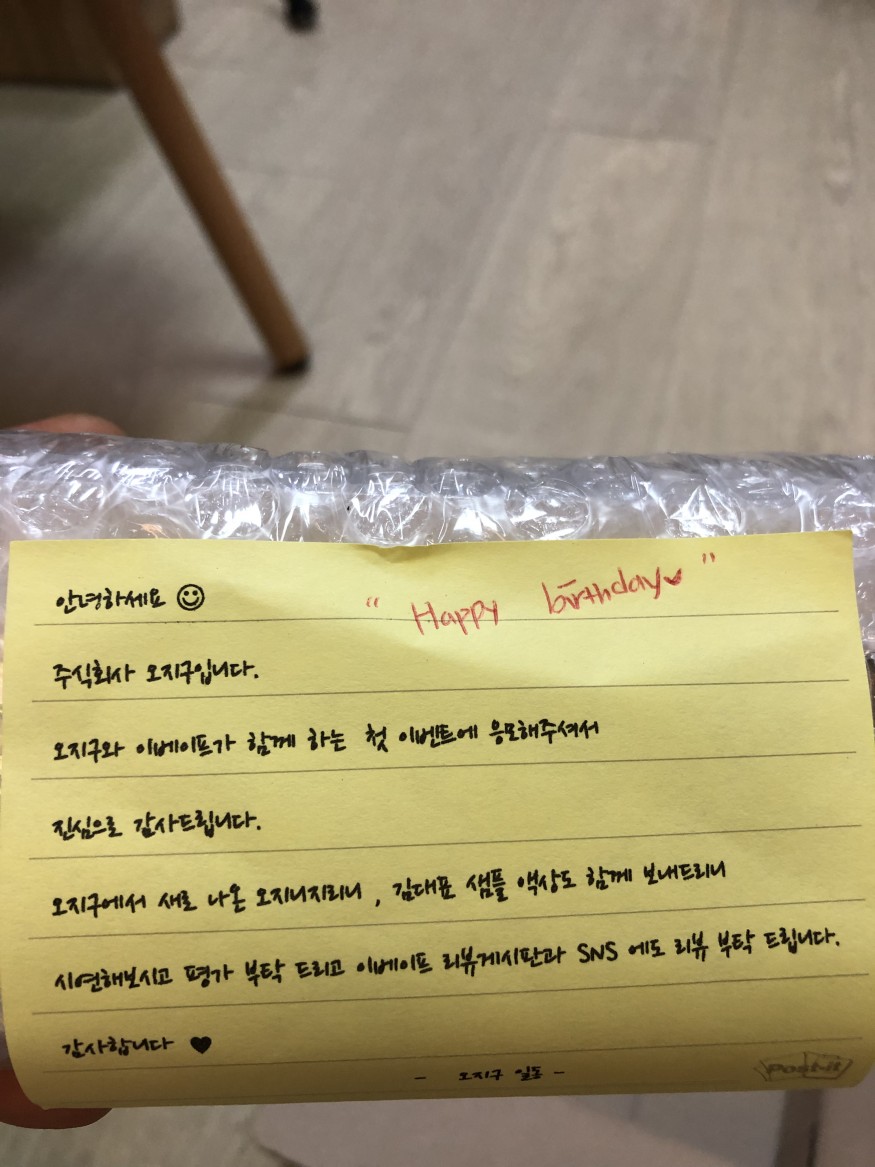 안녕하세요 ☺
“ Happy birthday ”
주식회사 오지구입니다.
오지구와 이베이프가 함께 하는 첫 이벤트에 응모해주셔서
진심으로 감사드립니다.
오지구에서 새로 나온 오지니지리니 , 김대표 샘플 액상도 함께 보내드리니
시연해보시고 평가 부탁 드리고 이베이프 리뷰게시판과 SNS 에도 리뷰 부탁 드립니다.
감사합니다 ♥
- 오지구 일동 -
Post-it